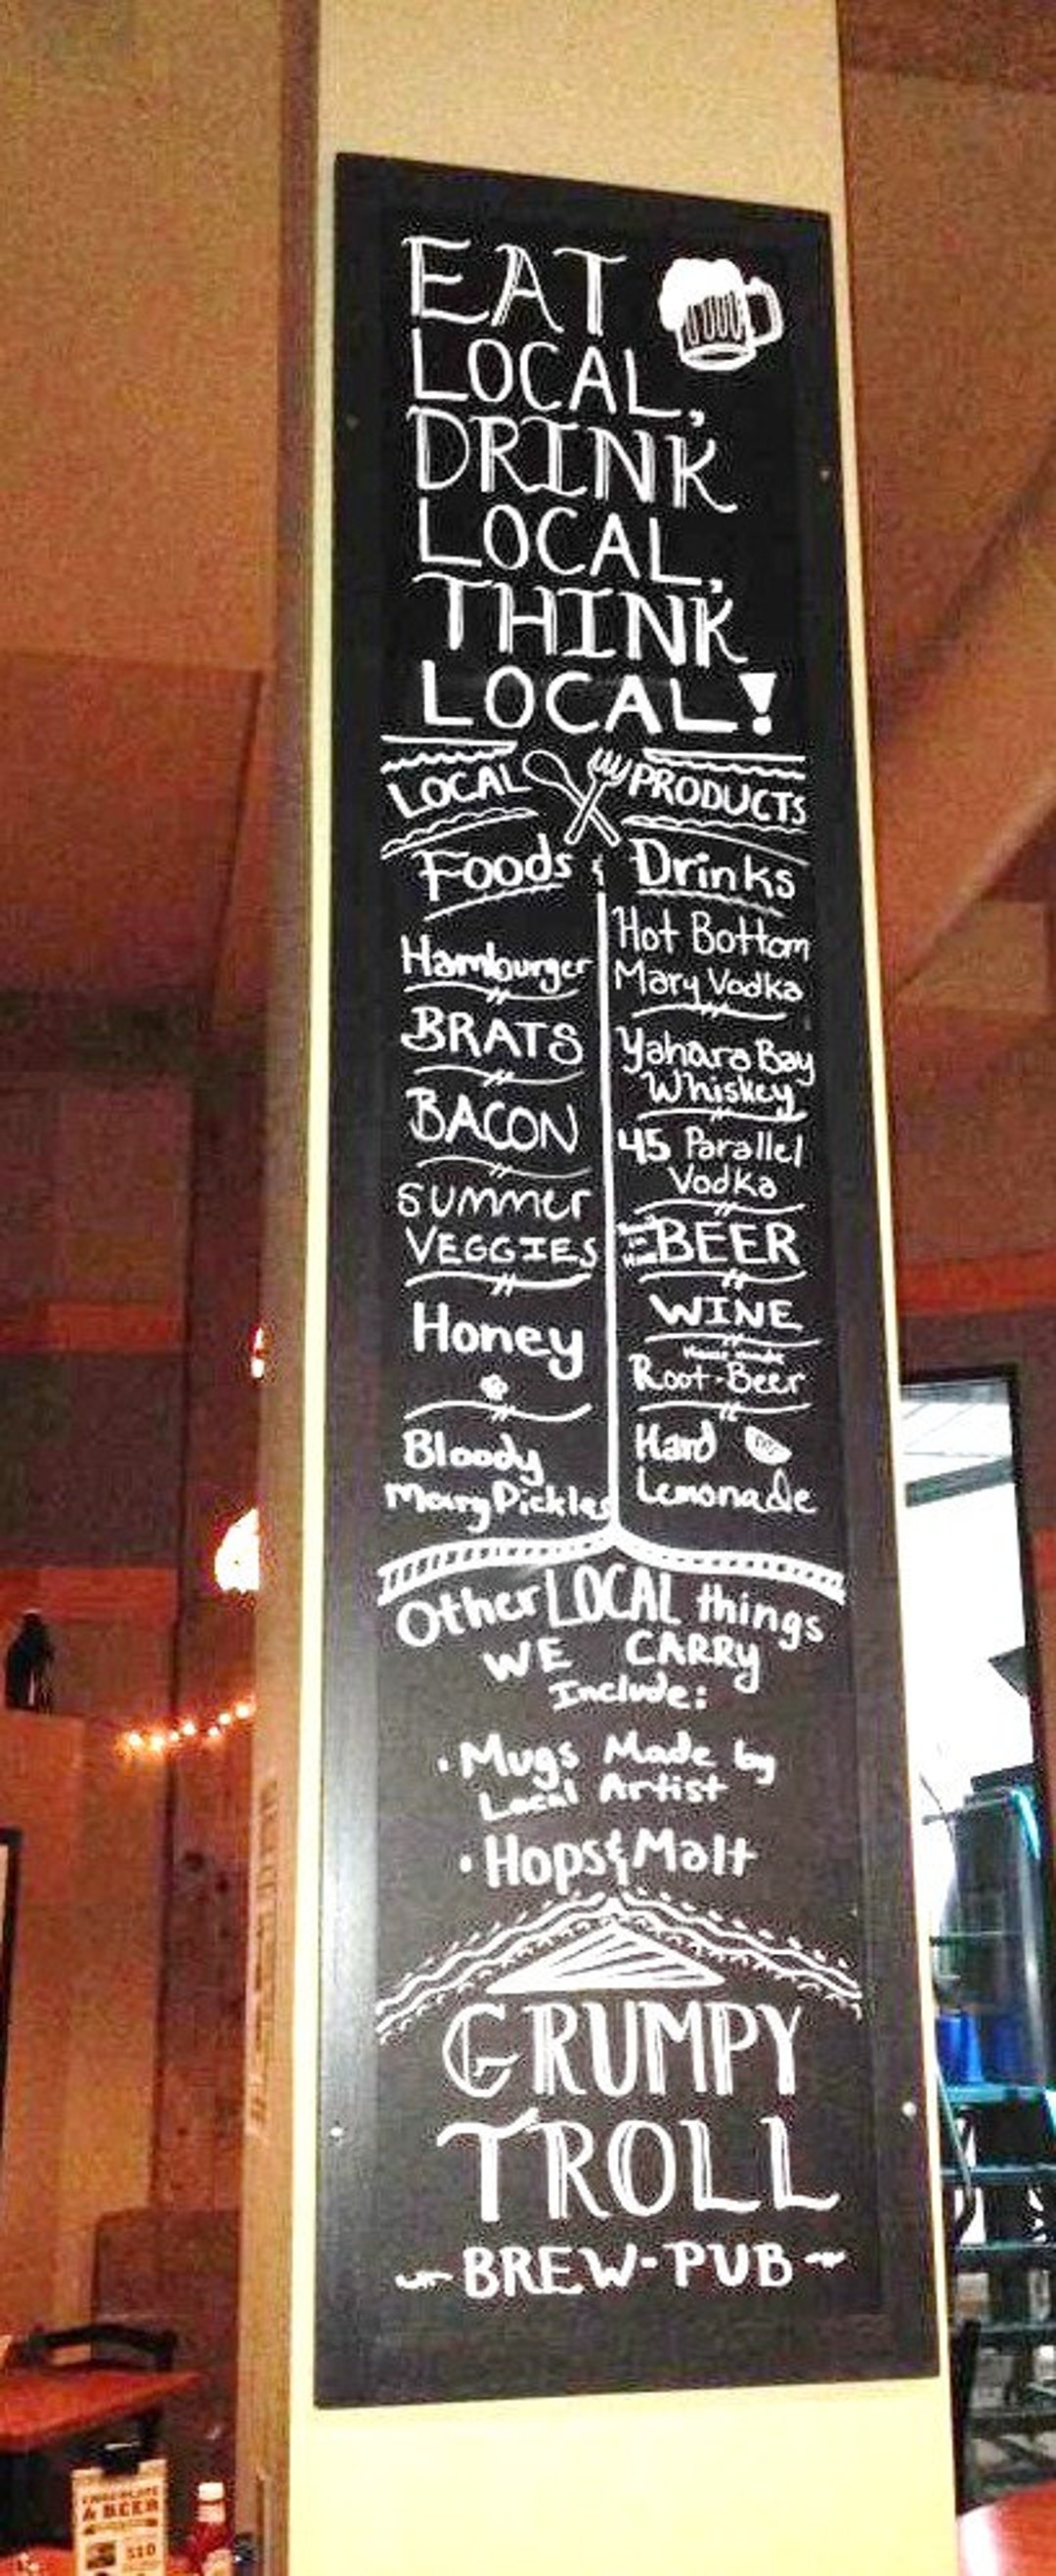 EAT
LOCAL,
DRINK
LOCAL,
THINK
LOCAL!
LOCAL PRODUCTS
Foods & Drinks
Hamburger
BRATS
BACON
SUMMER
VEGGIES
Honey
Bloody
Mary Pickles
Hot Bottom
Mary Vodka
Yahara Bay
Whiskey
45 Parallel
Vodka
BEER
WINE
House made
Root-Beer
Hard
Lemonade
Other LOCAL things
WE CARRY
Include:
• Mugs Made by
Local Artist
• Hops & Malt
GRUMPY
TROLL
~BREW-PUB~
CHOCOLATE
& BEER
$10